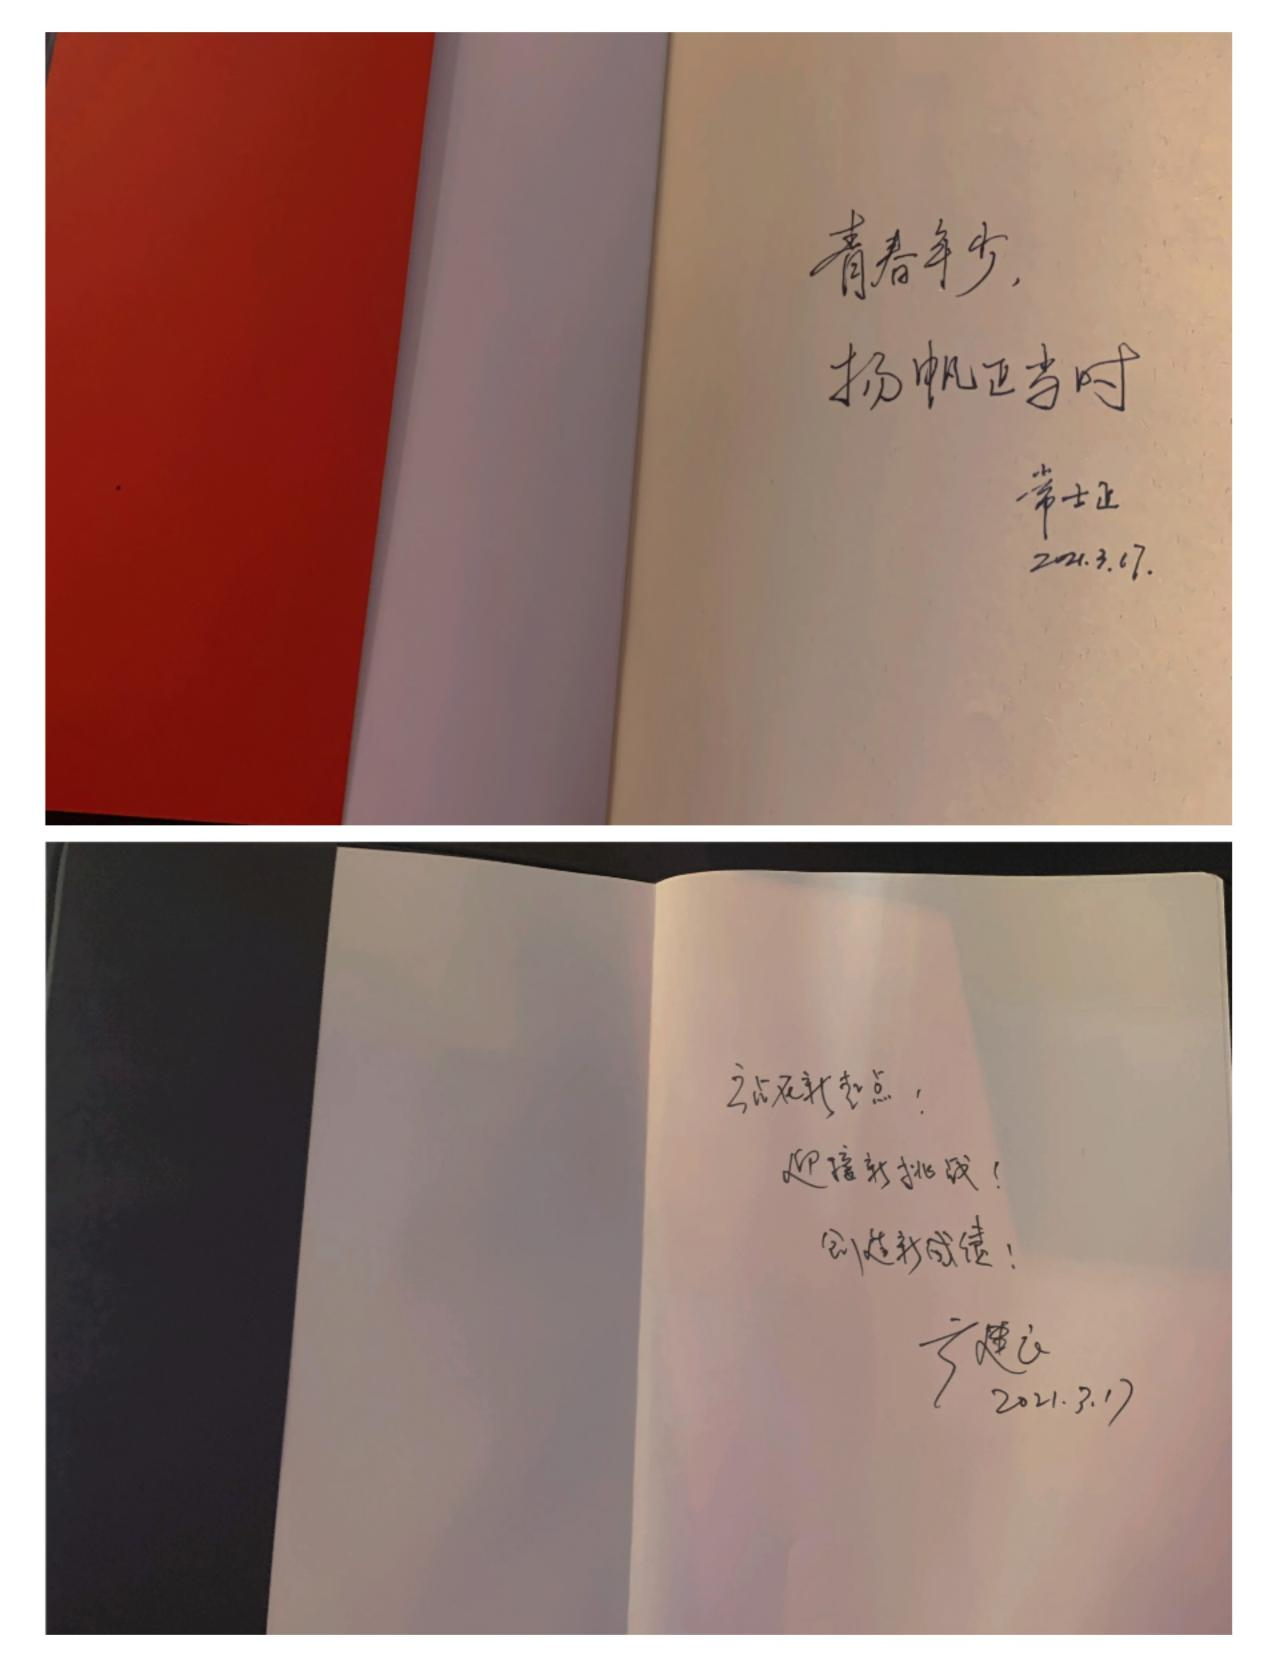 青春年少,
扬帆正当时
常士正
2021.3.17.
站在新起点!
迎接新挑战!
创造新成绩!
建
2021.3.17